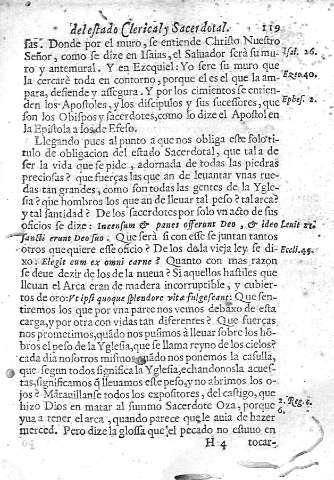 del estado Clerical, y Sacerdotal. 119
sas. Donde por el muro, se entiende Christo Nuestro
Señor, como se dize en Isaias, el Saluador serà su mu- Isai. 26.
ro y antemural. Y en Ezequiel: Yo sere su muro que
la cercarè toda en contorno, porque el es el que la am- Eze. 40.
para, defiende y assegura. Y por los cimientos se entien-
den los Apostoles, y los discipulos y sus sucessores, que Ephes. 2.
son los Obispos y sacerdotes, como lo dize el Apostol en
la Epistola a los de Efeso.
Llegando pues al punto a que nos obliga este solo ti-
tulo de obligacion del estado Sacerdotal, que tal a de
ser la vida que se pide, adornada de todas las piedras
preciosas? que fuerças las que an de leuantar vnas rue-
das tan grandes, como son todas las gentes de la Ygle-
sia? que hombros los que an de lleuar tal peso? tal arca? y
tal santidad? De los sacerdotes por solo vn acto de sus
oficios se dize: Incensum & panes offerunt Deo, & ideo Leuit 21.
sancti erunt Deo suo. Que serà si con esse se juntan tantos
otros que quiere esse oficio? De los de la vieja ley. se di- Eccli. 45.
xo: Elegit eum ex omni carne? Quanto con mas razon
se deue dezir de los de la nueua? Si aquellos hastiles que
lleuan el Arca eran de madera incorruptible, y cubier-
tos de oro: Vt ipsi quoque splendore vitæ fulgescant: Que sen-
tiremos los que por vna parte nos vemos debaxo de esta
carga, y por otra con vidas tan diferentes? Que fuerças
nos prometimos, quãdo nos pusimos à lleuar sobre los hõ-
bros el peso de la Yglesia, que se llama reyno de los cielos?
cada dia nosotros mismos quãdo nos ponemos la casulla,
que segun todos significa la Yglesia, echandonosla acues-
tas, significamos q̃ lleuamos este peso, y no abrimos los o-
jos? Marauillanse todos los expositores, del castigo, que 2. Reg. 6.
hizo Dios en matar al summo Sacerdote Oza, porque 6.
yua a tener el arca, quando parece que le auia de hazer
merced. Pero dize la glossa que el pecado no estuuo en
H 4 tocar-